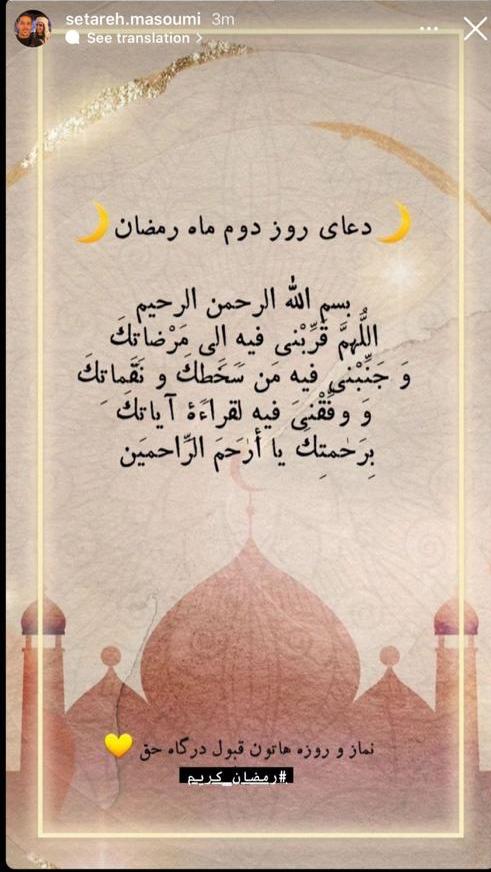 setareh.masoumi 3m
See translation >
🌙 دعای روز دوم ماه رمضان 🌙
بسم الله الرحمن الرحیم
اللَّهمَّ قَرِّبْنی فیه الی مَرْضاتِكَ
وَ جَنِّبْنی فیه مَن سَخَطكَ و نَقَماتكَ
وَ وفِّقْنی فیه لقراءَةِ آیاتكَ
بِرَحمتِكَ یا أرحَمَ الرِّاحمیَن
نماز و روزه هاتون قبول درگاه حق 💛
#رمضان_کریم